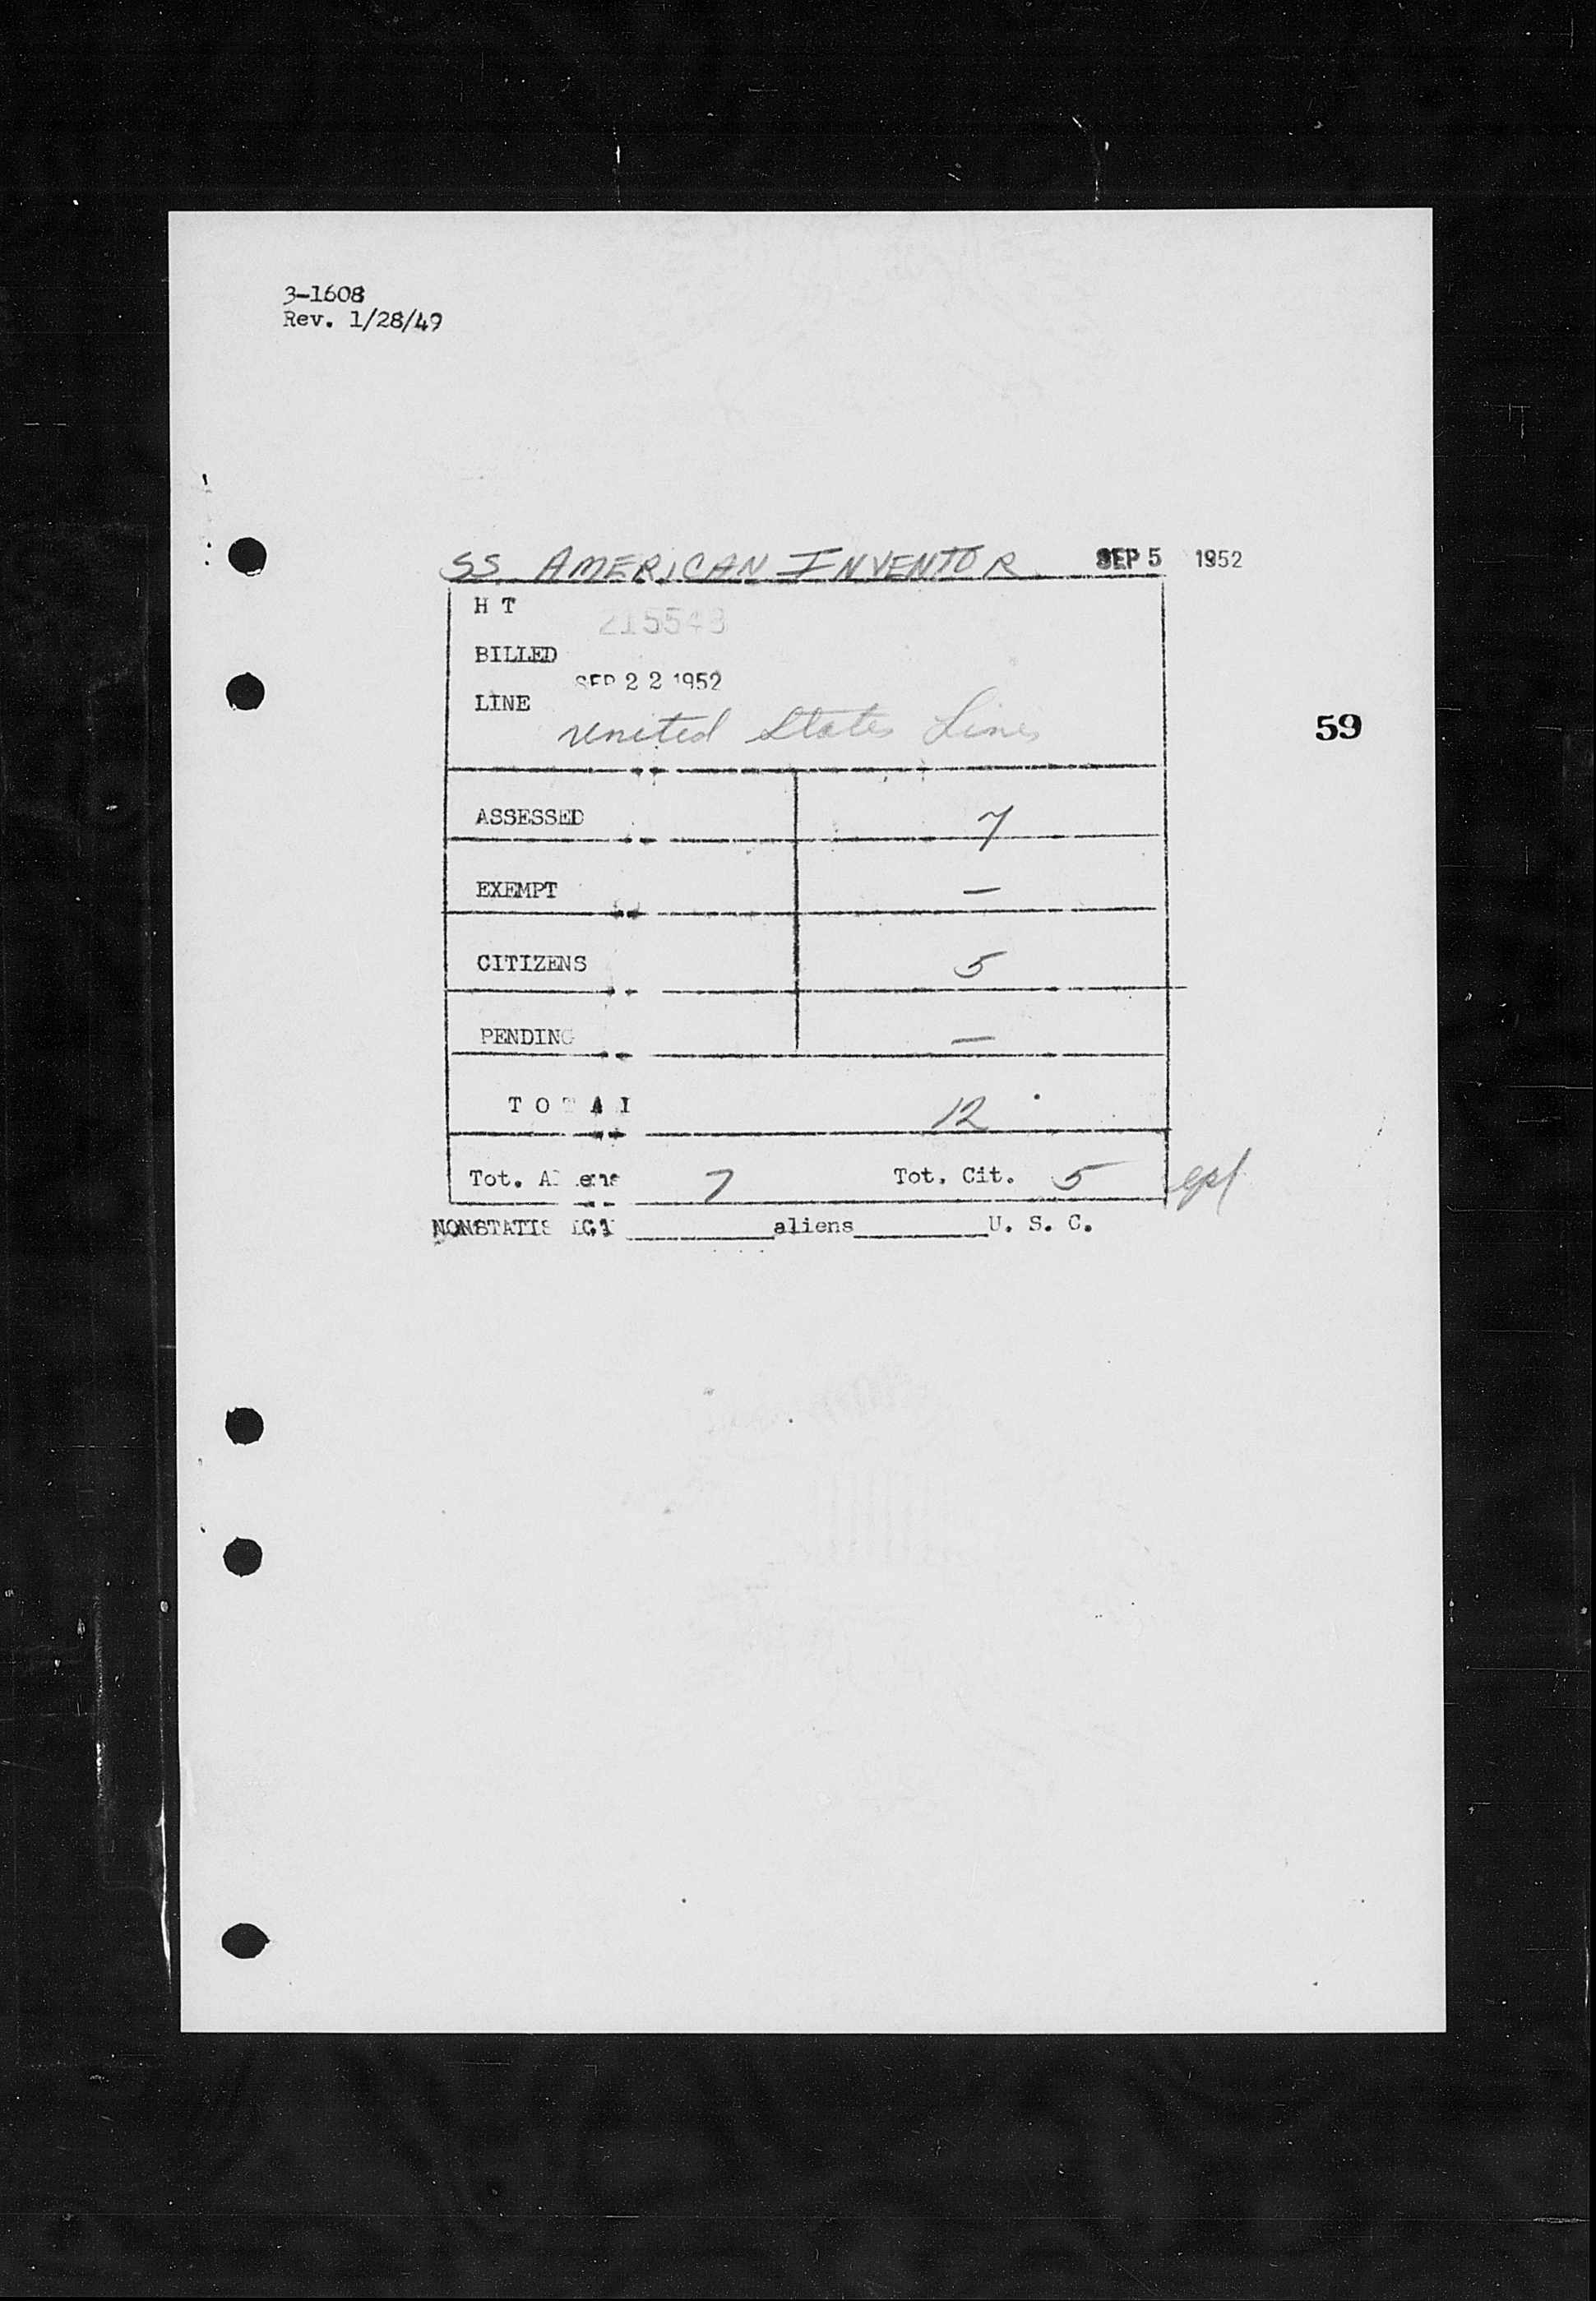 3-1608
Rev. 1/28/49
SS. AMERICAN INVENTOR SEP 5 1952
H T
215543
BILLED
SEP 22 1952
LINE
United States Lines
59
ASSESSED 7
EXEMPT —
CITIZENS 5
PENDING —
T O T A L 12
Tot. Aliens 7 Tot. Cit. 5
NONSTATISTICAL ________aliens________U. S. C.